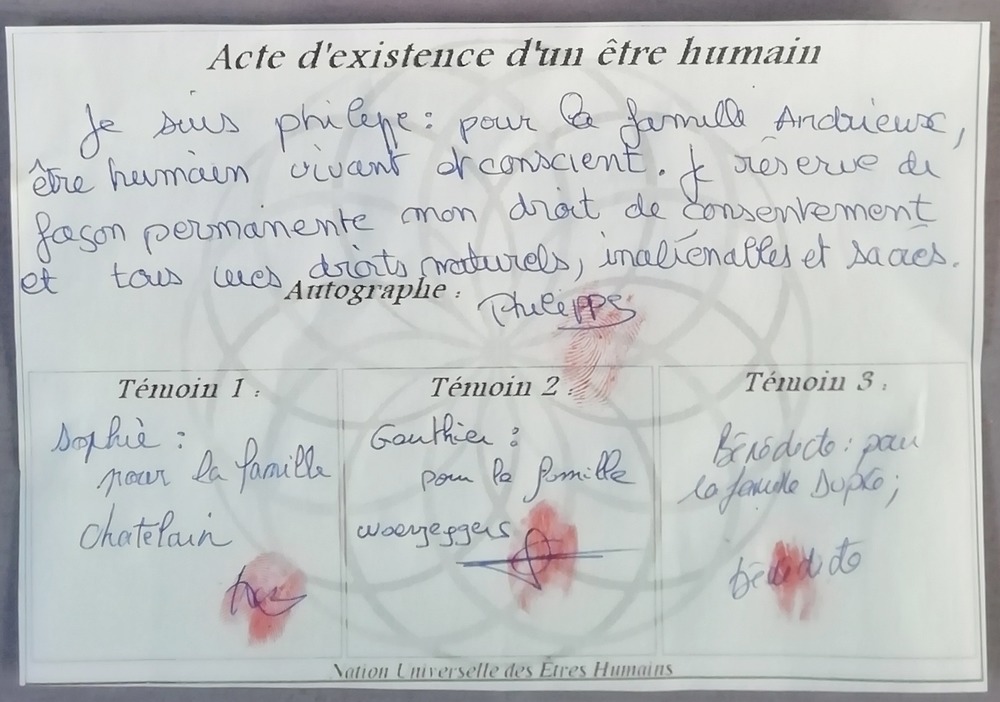 Acte d'existence d'un être humain
Je suis philippe : pour la famille Andrieux,
être humain vivant et conscient. Je réserve de
façon permanente mon droit de consentement
et tous mes droits naturels, inaliénables et sacrés.
Autographe :
Philippe
Témoin 1 :
Sophie :
pour la famille
Chatelain
Témoin 2 :
Gauthier :
pour la famille
Woerzeggers
Témoin 3 :
Bénédicte : pour
la famille Dupré ;
Bénédicte
Nation Universelle des Êtres Humains